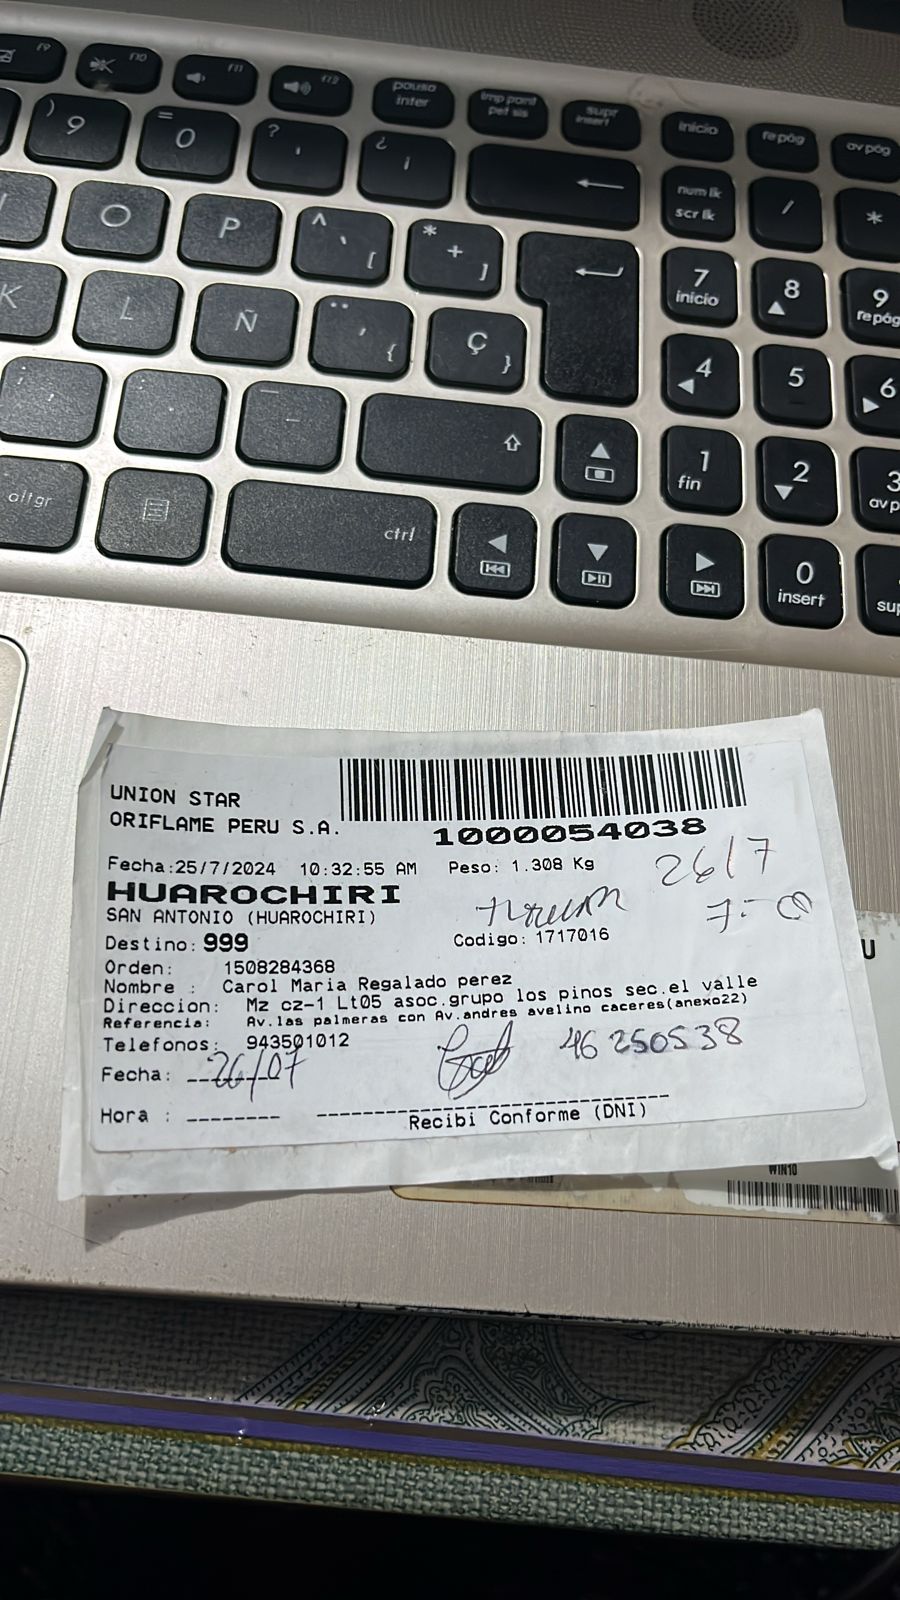 f9 f10 f11 f12 pausa inter imp pant pet sis supr insert inicio re pág av pág
) 9 = 0 ? ' ¿ ¡ ← num lk scr lk / *
O P ^ ` [ * + ] 7 inicio 8 9 re pág
K L Ñ ¨ ´ { Ç } 4 5 6
1 fin 2 3 av p
alt gr ctrl 0 insert sup
UNION STAR
ORIFLAME PERU S.A.
1000054038
Fecha:25/7/2024 10:32:55 AM Peso: 1.308 Kg
26/7
HUAROCHIRI
SAN ANTONIO (HUAROCHIRI)
Destino: 999 Codigo: 1717016
Orden: 1508284368
Nombre : Carol Maria Regalado perez
Direccion: Mz cz-1 Lt05 asoc.grupo los pinos sec.el valle
Referencia: Av.las palmeras con Av.andres avelino caceres(anexo22)
Telefonos: 943501012
46250538
Fecha: 26/07
Hora : --------
Recibi Conforme (DNI)
U
WIN10